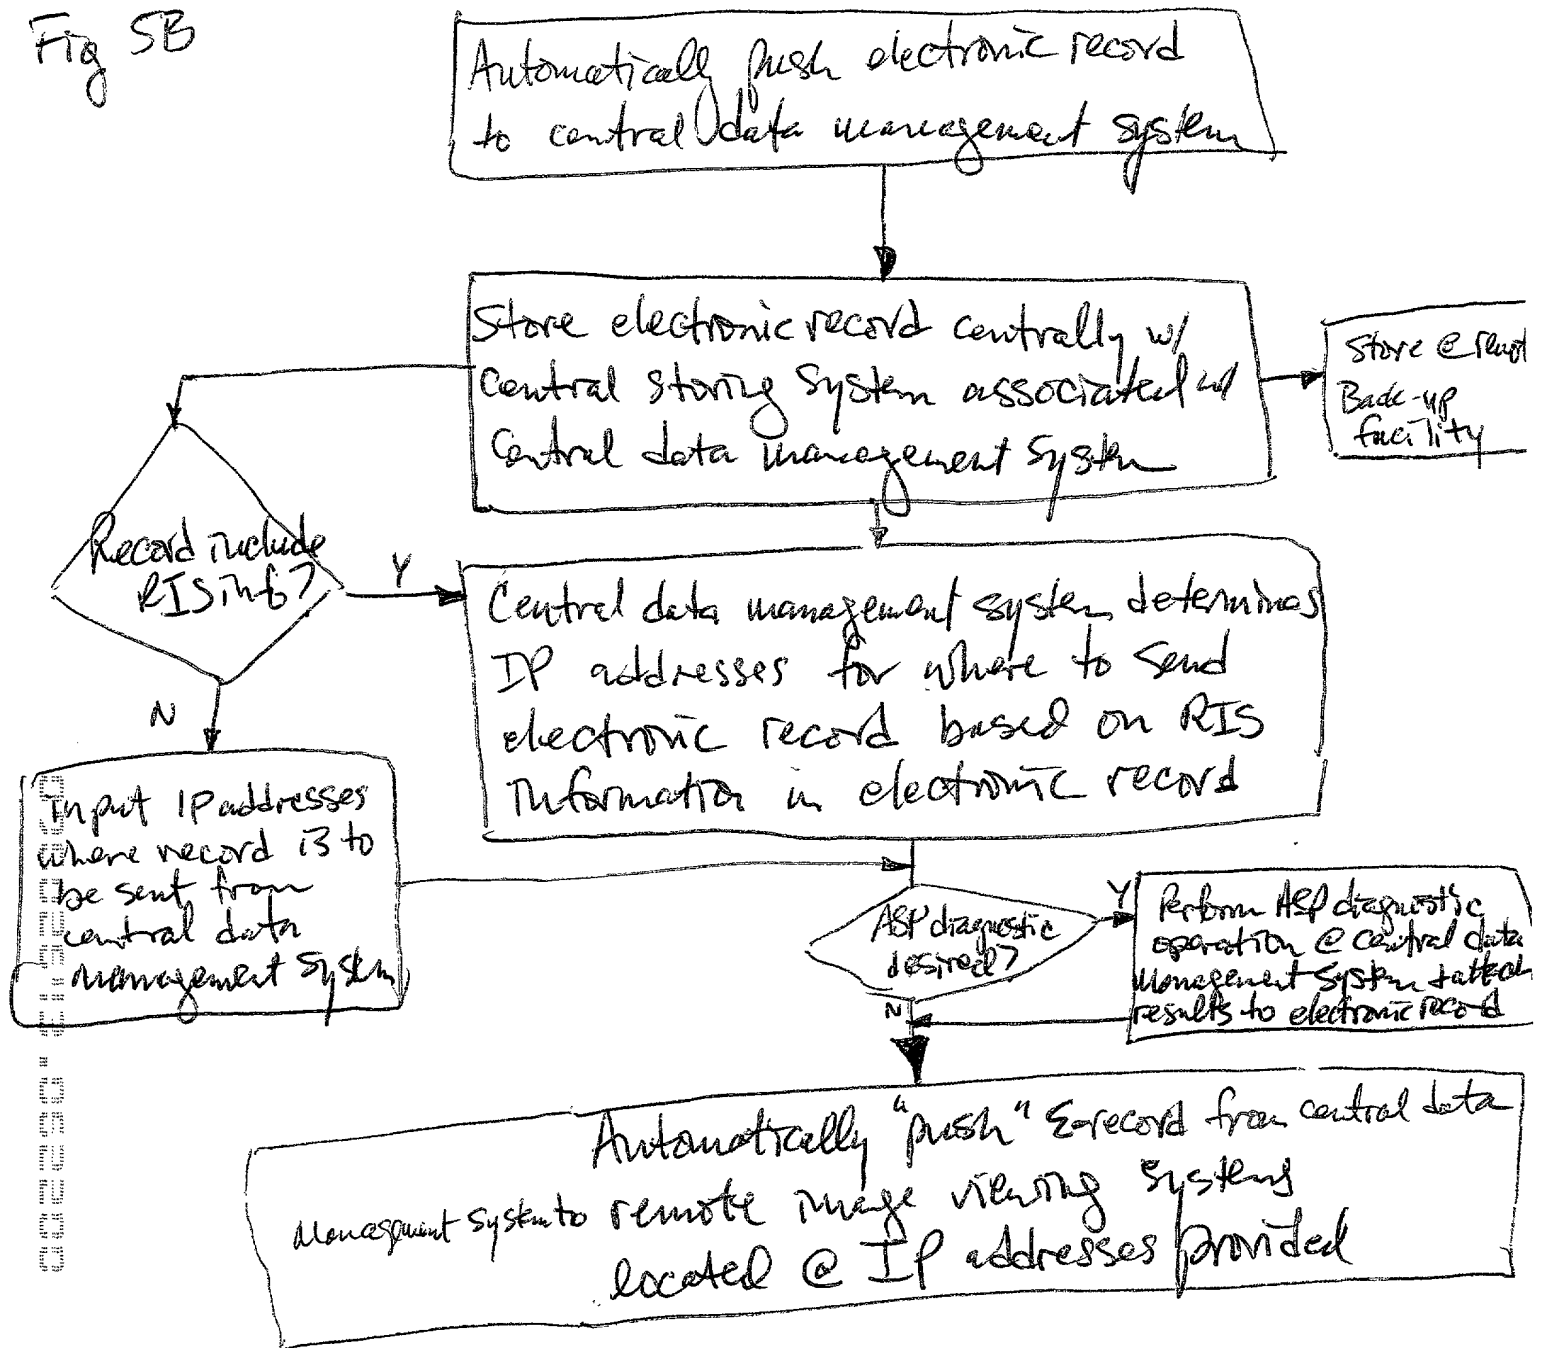 Fig 5B
Automatically push electronic record
to central data management system
Store electronic record centrally w/
Central storing System associated w/
Central data management System
Store @ remot
Back-up
facility
Record include
RIS info?
Y
N
Central data management system determines
IP addresses for where to send
electronic record based on RIS
Information in electronic record
Input IP addresses
where record is to
be sent from
central data
management system
ASP diagnostic
desired?
Y
N
Perform ASP diagnostic
operation @ central data
Management System + attach
results to electronic record
Automatically "push" E-record from central data
Management System to remote image viewing systems
located @ IP addresses provided